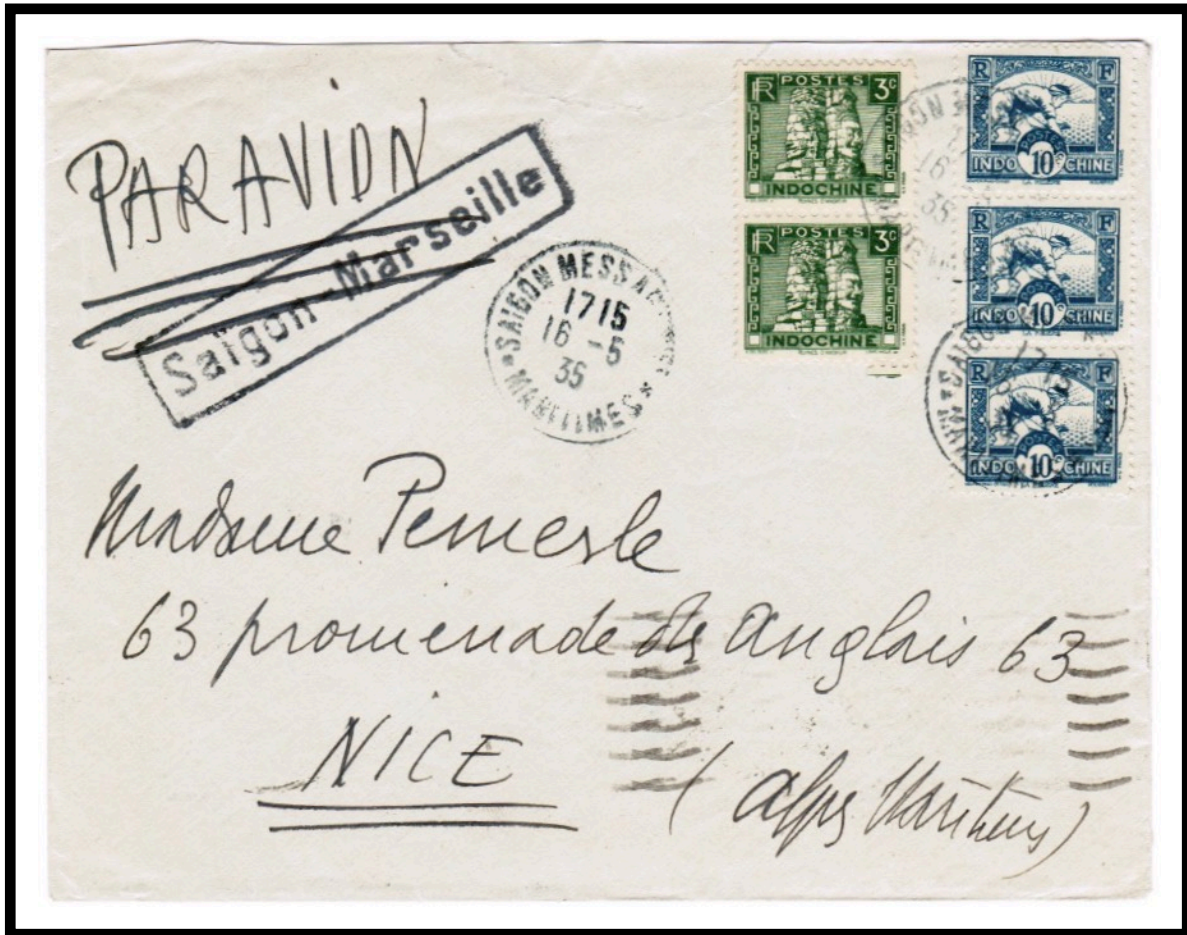 PAR AVION
Saïgon-Marseille
SAIGON MESSAGERIES
MARITIMES
1715
16 - 5
35
RF POSTES 3c
INDOCHINE
RF POSTES 3c
INDOCHINE
R F
POSTES
INDO 10c CHINE
R F
POSTES
INDO 10c CHINE
R F
POSTES
INDO 10c CHINE
Madame Pemerle
63 promenade des Anglais 63
NICE
(Alpes Maritimes)